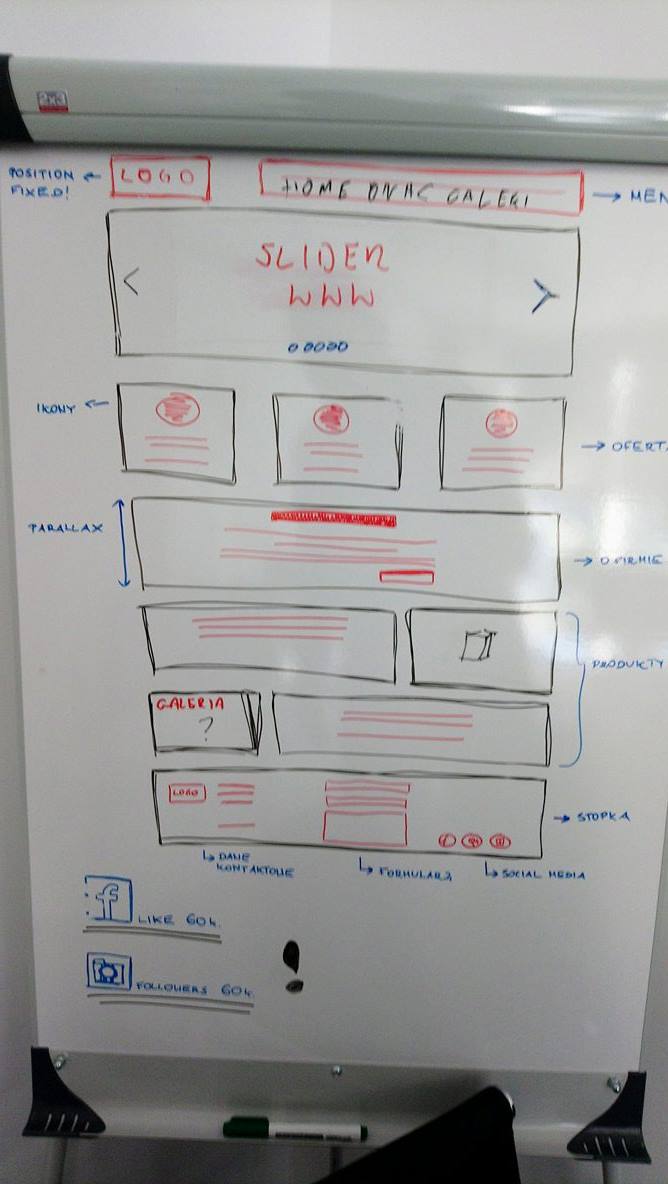 2x3
POSITION
FIXED!
LOGO
HOME ONAS GALERI
MEN
SLIDER
WWW
IKONY
OFERTA
PARALLAX
O FIRMIE
PRODUKTY
GALERIA
?
LOGO
STOPKA
DANE
KONTAKTOWE
FORMULARZ
SOCIAL MEDIA
f
LIKE 60k.
!
FOLLOWERS 60k.